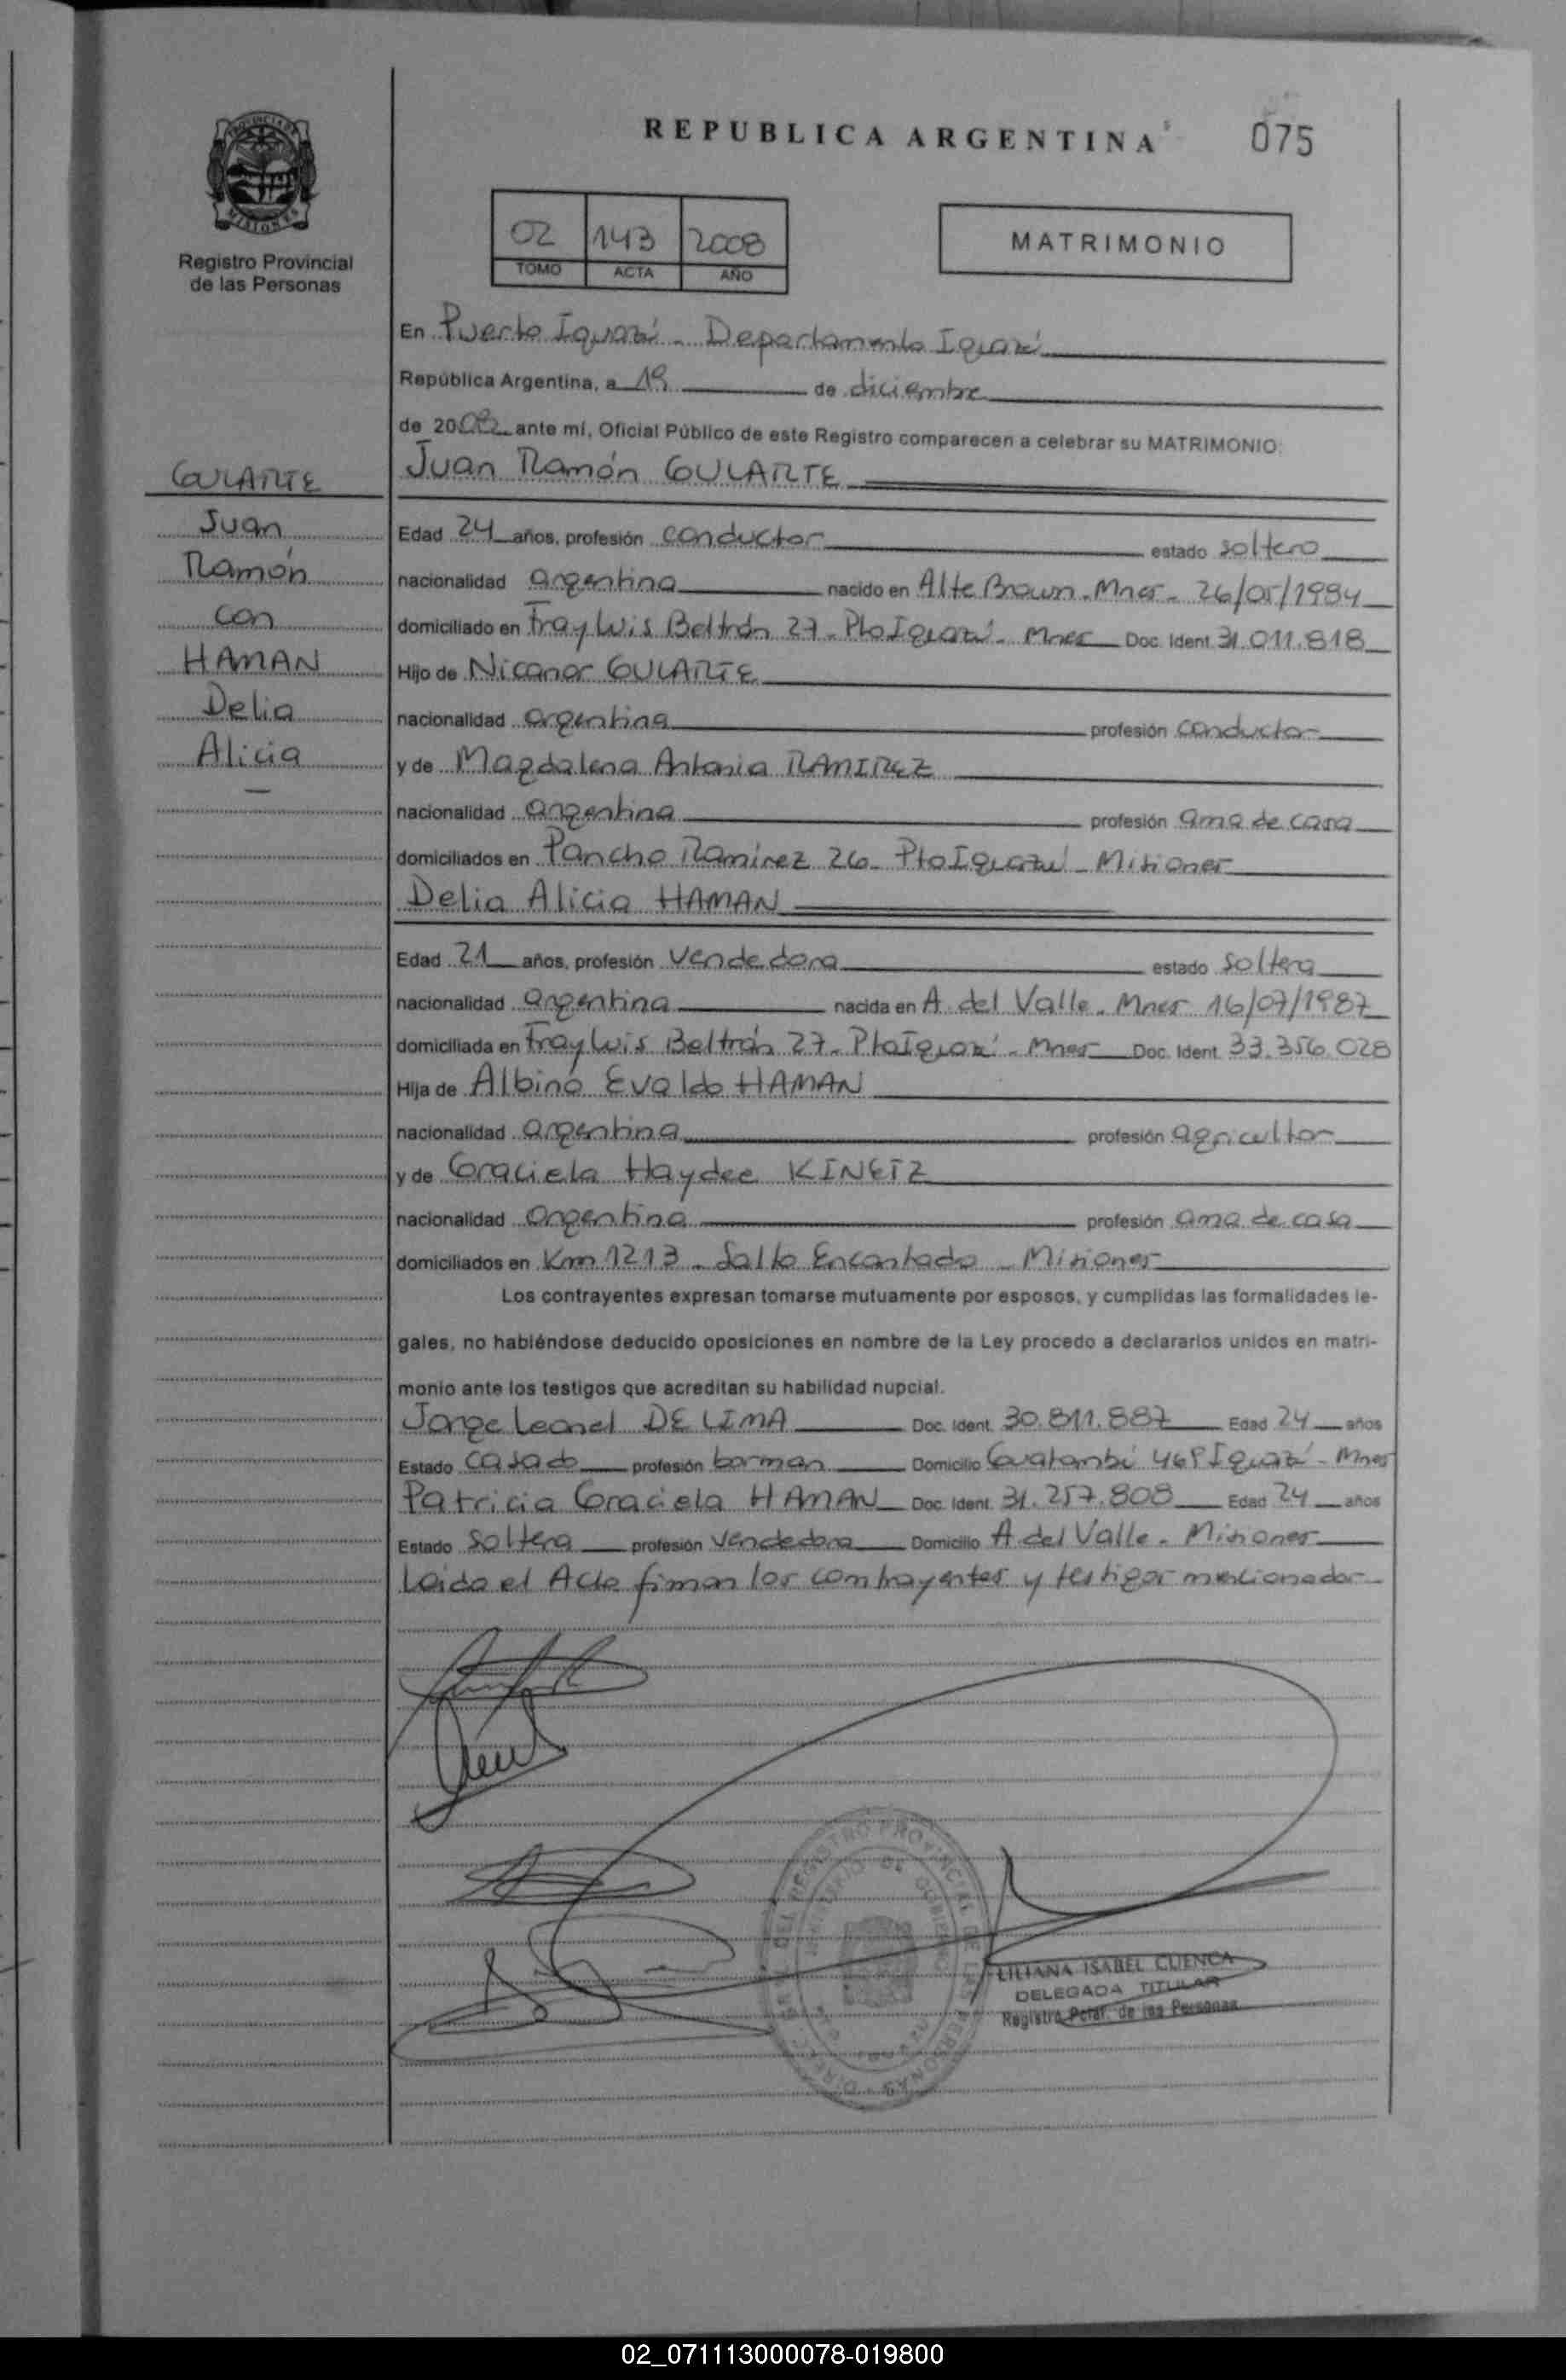 REPUBLICA ARGENTINA
075
PROVINCIA DE
MISIONES
Registro Provincial
de las Personas
02 143 2008
TOMO ACTA AÑO
MATRIMONIO
En Puerto Iguazú - Departamento Iguazú
República Argentina, a 19 de diciembre
de 2008 ante mí, Oficial Público de este Registro comparecen a celebrar su MATRIMONIO:
GULARTE
Juan
Ramón
con
HAMAN
Delia
Alicia
Juan Ramón GULARTE
Edad 24 años, profesión conductor estado soltero
nacionalidad argentina nacido en Alte Brown - Mnes - 26/05/1984
domiciliado en Fray Luis Beltrán 27 - Pto Iguazú - Mnes Doc. Ident. 31.011.818
Hijo de Nicanor GULARTE
nacionalidad argentina profesión conductor
y de Magdalena Antonia RAMIREZ
nacionalidad argentina profesión ama de casa
domiciliados en Pancho Ramírez 26 - Pto Iguazú - Misiones
Delia Alicia HAMAN
Edad 21 años, profesión vendedora estado soltera
nacionalidad argentina nacida en A. del Valle - Mnes 16/07/1987
domiciliada en Fray Luis Beltrán 27 - Pto Iguazú - Mnes Doc. Ident. 33.356.028
Hija de Albino Evaldo HAMAN
nacionalidad argentina profesión agricultor
y de Graciela Haydee KINETZ
nacionalidad argentina profesión ama de casa
domiciliados en Km 1213 - Salto Encantado - Misiones
Los contrayentes expresan tomarse mutuamente por esposos, y cumplidas las formalidades le-
gales, no habiéndose deducido oposiciones en nombre de la Ley procedo a declararlos unidos en matri-
monio ante los testigos que acreditan su habilidad nupcial.
Jorge Leonel DE LIMA Doc. Ident. 30.811.887 Edad 24 años
Estado casado profesión barman Domicilio Guatambú 46 P Iguazú - Mnes
Patricia Graciela HAMAN Doc. Ident. 31.257.808 Edad 24 años
Estado soltera profesión vendedora Domicilio A del Valle - Misiones
Leída el Acta firman los contrayentes y testigos mencionados
DEL REGISTRO PROVINCIAL DE LAS PERSONAS
DE GOBIERNO
LILIANA ISABEL CUENCA
DELEGADA TITULAR
Registro Pcial. de las Personas
02_071113000078-019800